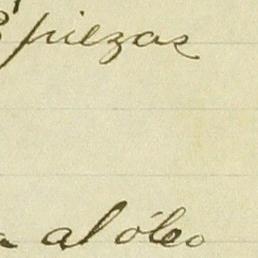 piezas
al óleo